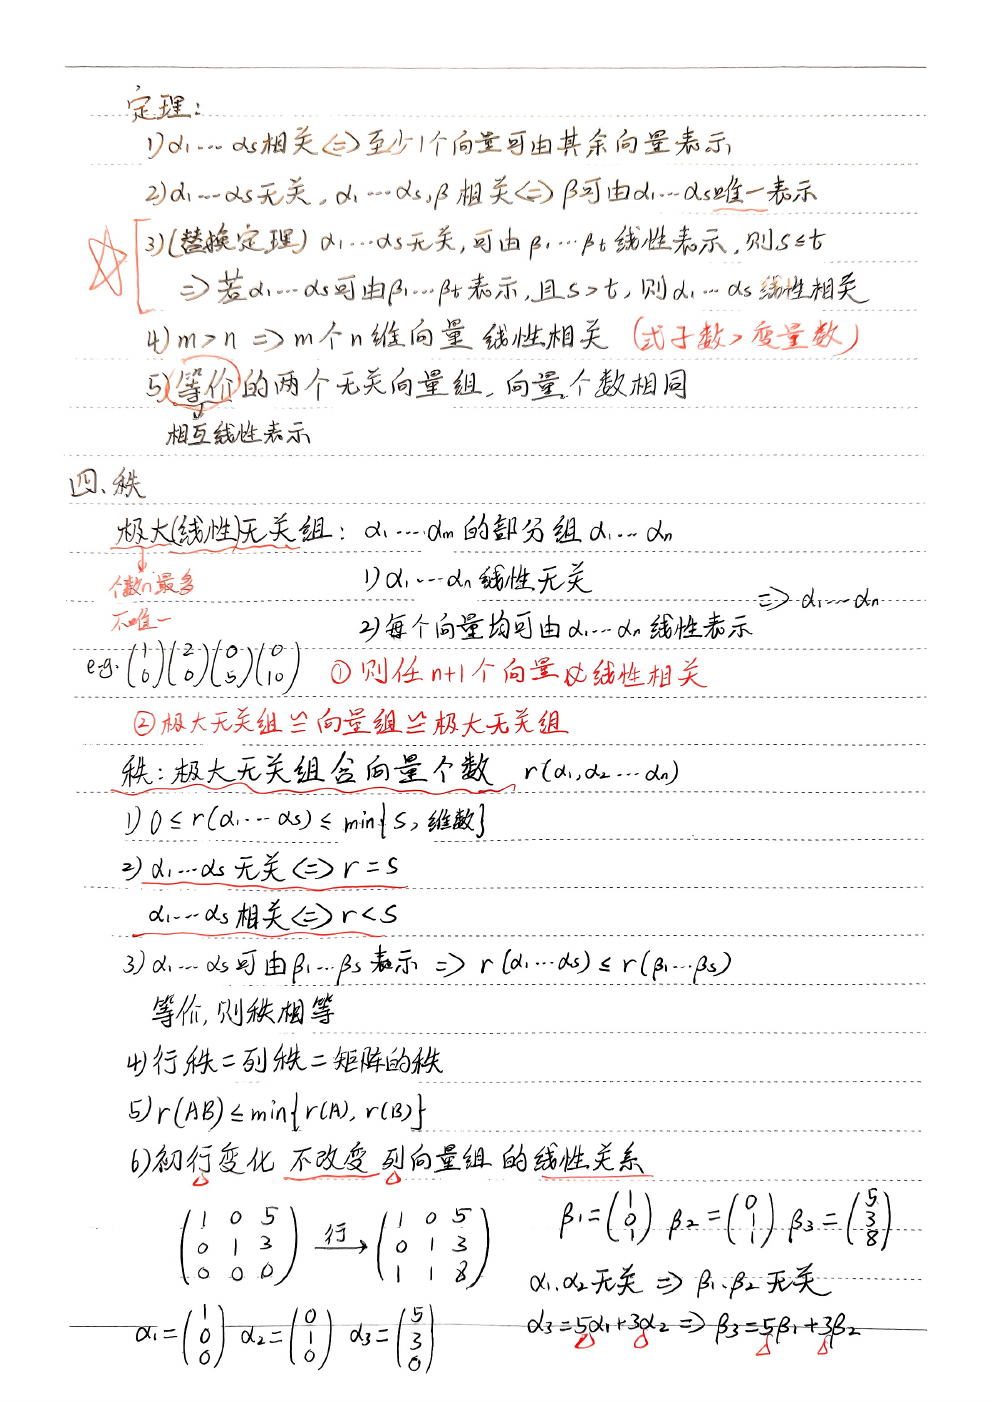 定理:
1) α₁…αs相关<=>至少1个向量可由其余向量表示
2) α₁…αs无关, α₁…αs,β 相关<=>β可由α₁…αs唯一表示
3)(替换定理) α₁…αs无关,可由β₁…βt线性表示,则s≤t
=>若α₁…αs可由β₁…βt表示,且s>t,则α₁…αs线性相关
4) m>n => m个n维向量 线性相关 (式子数>变量数)
5) 等价的两个无关向量组,向量个数相同
相互线性表示
四、秩
极大(线性)无关组: α₁……αm的部分组α₁…αn
个数n最多
1) α₁…αn线性无关
=> α₁…αn
不唯一
2)每个向量均可由α₁…αn线性表示
e.g. (1 0)(2 0)(0 5)(0 10)
①则任n+1个向量必线性相关
②极大无关组≌向量组≌极大无关组
秩:极大无关组含向量个数 r(α₁,α₂…αn)
1) 0≤r(α₁…αs)≤min{s,维数}
2) α₁…αs无关<=>r=s
α₁…αs相关<=>r<s
3) α₁…αs可由β₁…βs表示 => r(α₁…αs)≤r(β₁…βs)
等价,则秩相等
4)行秩=列秩=矩阵的秩
5) r(AB)≤min{r(A), r(B)}
6)初行变化 不改变 列向量组 的线性关系
(1 0 5 / 0 1 3 / 0 0 0) 行→ (1 0 5 / 0 1 3 / 1 1 8)
β₁=(1 0 1) β₂=(0 1 1) β₃=(5 3 8)
α₁.α₂无关 => β₁.β₂无关
α₁=(1 0 0) α₂=(0 1 0) α₃=(5 3 0)
α₃=5α₁+3α₂ => β₃=5β₁+3β₂